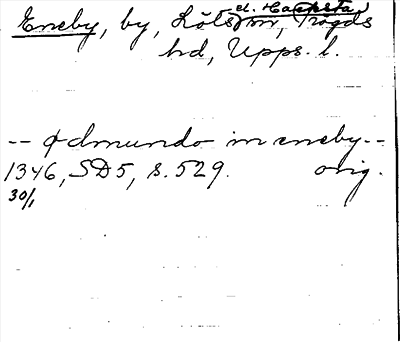 Eneby, by, Löts sn, Trögds
hd, Upps. l.
-- Ødmundo in eneby --
1346, SD5, s. 529. orig.
30/1